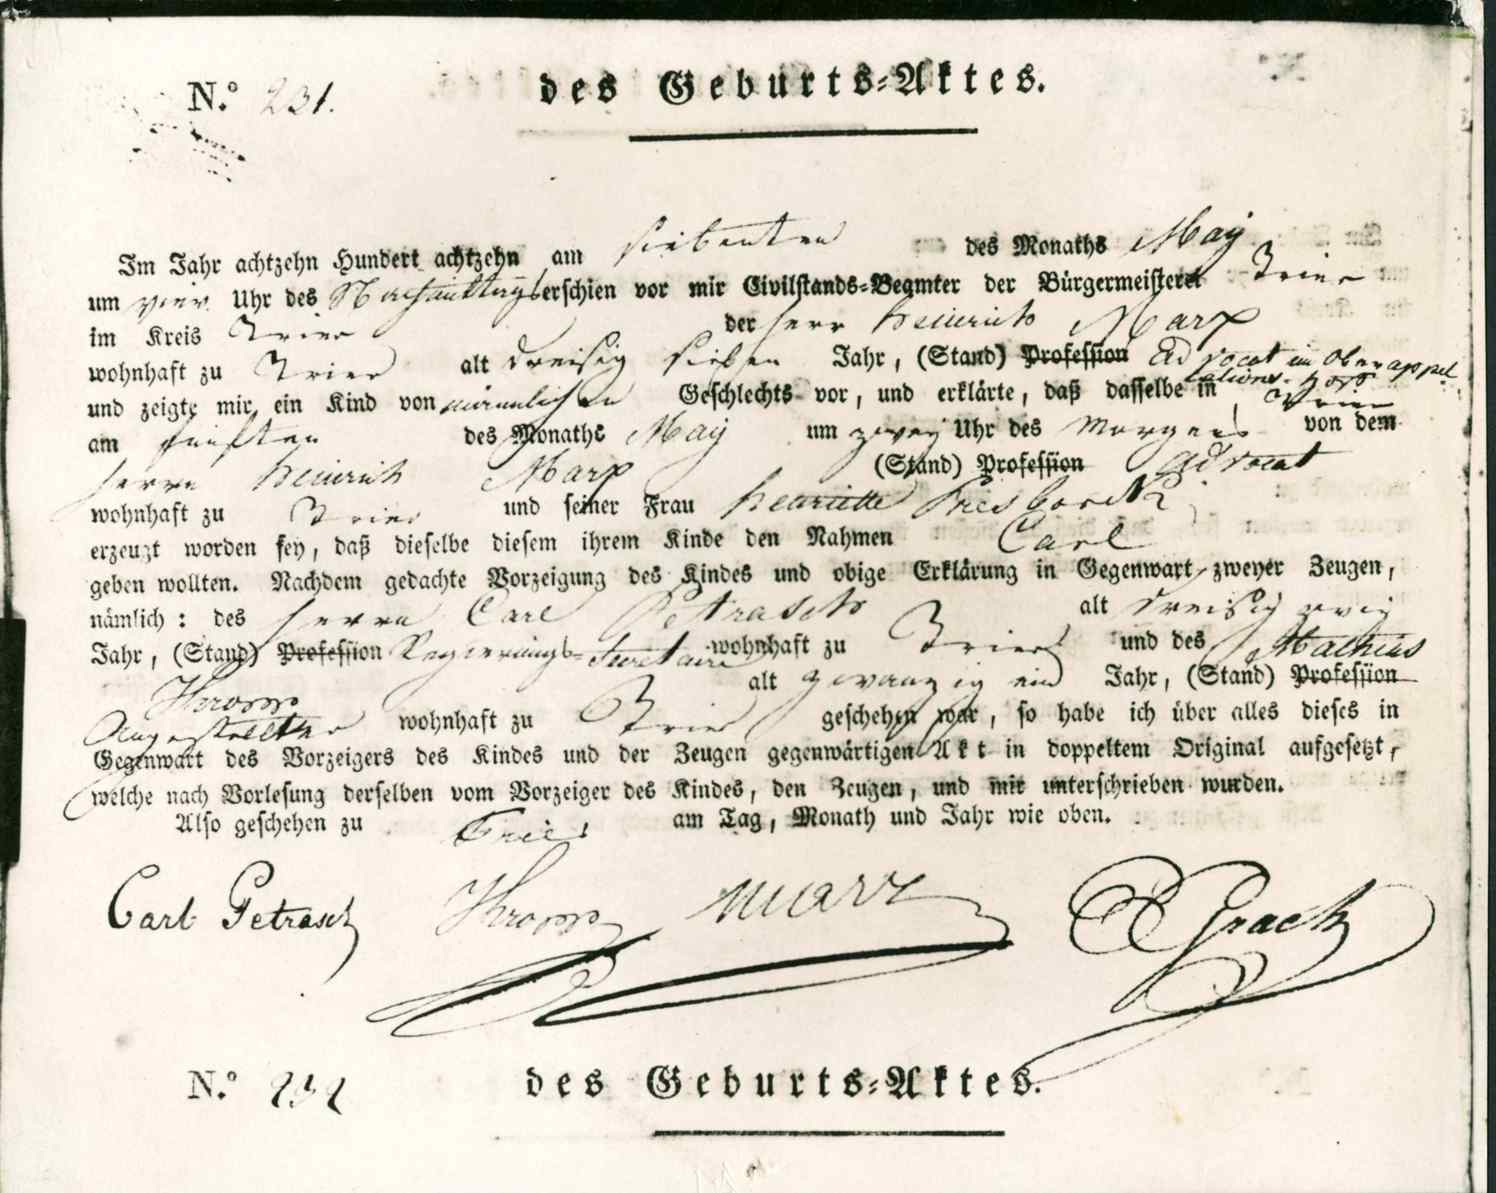 N.º 231. des Geburts-Aktes.
Im Jahr achtzehn Hundert achtzehn am siebenten des Monaths May
um vier Uhr des Nachmittags erschien vor mir Civilstands-Beamter der Bürgermeisterei Trier
im Kreis Trier der Herr Heinrich Marx
wohnhaft zu Trier alt dreisig sieben Jahr, (Stand) Profession Advocat im Oberappel
lations-Hoffe
und zeigte mir ein Kind von männlichen Geschlechts vor, und erklärte, daß dasselbe in Trier
am fünften des Monaths May um zwey Uhr des Morgens von dem
Herrn Heinrich Marx (Stand) Profession Advocat
wohnhaft zu Trier und seiner Frau Henriette Presborck
erzeugt worden sey, daß dieselbe diesem ihrem Kinde den Nahmen Carl
geben wollten. Nachdem gedachte Vorzeigung des Kindes und obige Erklärung in Gegenwart zweyer Zeugen,
nämlich: des Herrn Carl Petrasch alt dreisig zwei
Jahr, (Stand) Profession Regierungs-Secretaire wohnhaft zu Trier und des Mathias
Kropp alt zwanzig ein Jahr, (Stand) Profession
Angestellter wohnhaft zu Trier geschehen war, so habe ich über alles dieses in
Gegenwart des Vorzeigers des Kindes und der Zeugen gegenwärtigen Akt in doppeltem Original aufgesetzt,
welche nach Vorlesung derselben vom Vorzeiger des Kindes, den Zeugen, und mir unterschrieben wurden.
Also geschehen zu Trier am Tag, Monath und Jahr wie oben.
Carl Petrasch Kropp Marx Grach
N.º 232 des Geburts-Aktes.